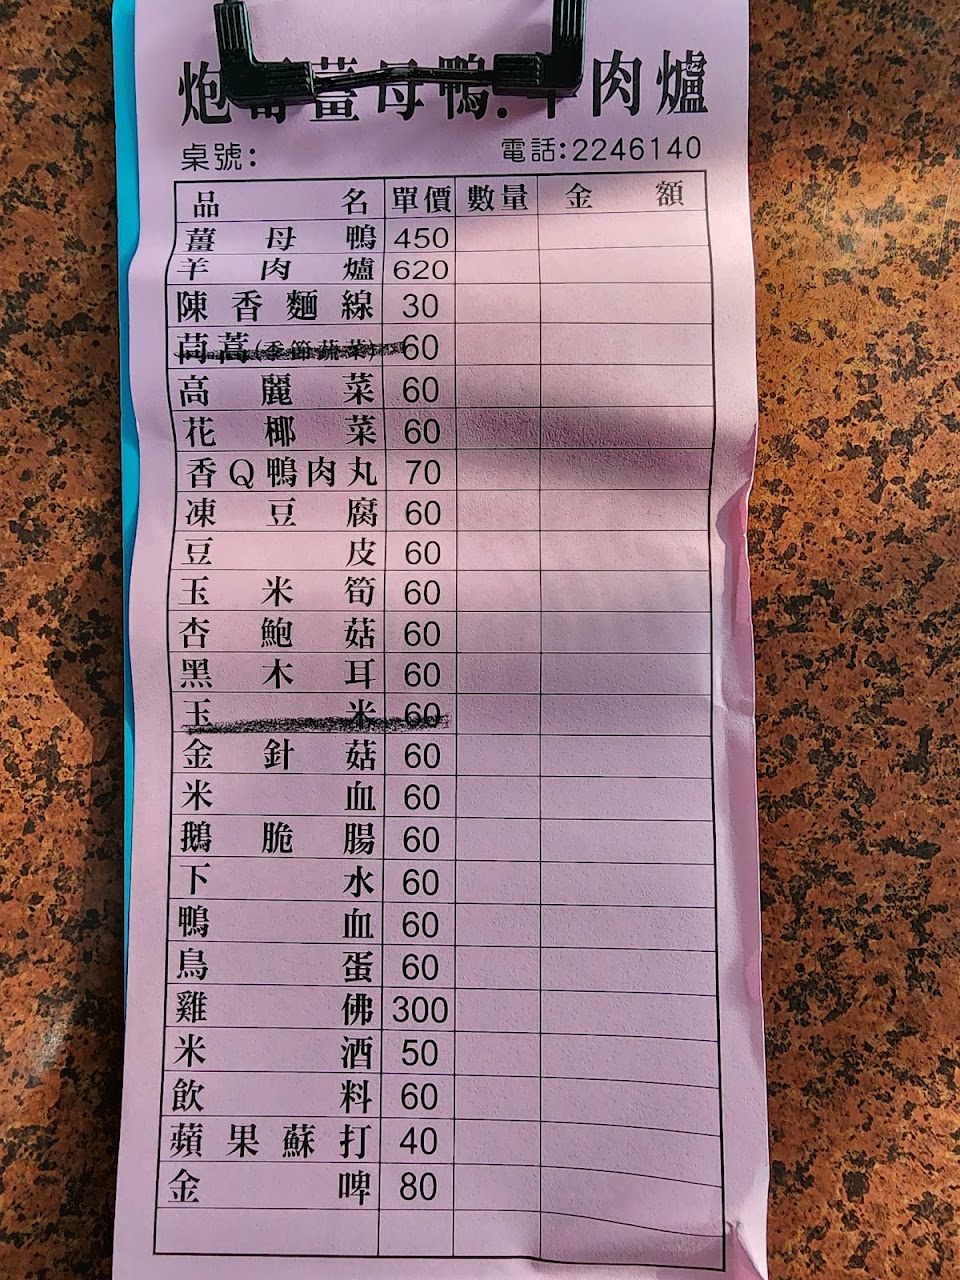 炮 薑母鴨.羊肉爐
桌號:
電話:2246140
品名 單價 數量 金額
薑母鴨 450
羊肉爐 620
陳香麵線 30
茼蒿(季節蔬菜) 60
高麗菜 60
花椰菜 60
香Q鴨肉丸 70
凍豆腐 60
豆皮 60
玉米筍 60
杏鮑菇 60
黑木耳 60
玉米 60
金針菇 60
米血 60
鵝脆腸 60
下水 60
鴨血 60
鳥蛋 60
雞佛 300
米酒 50
飲料 60
蘋果蘇打 40
金啤 80